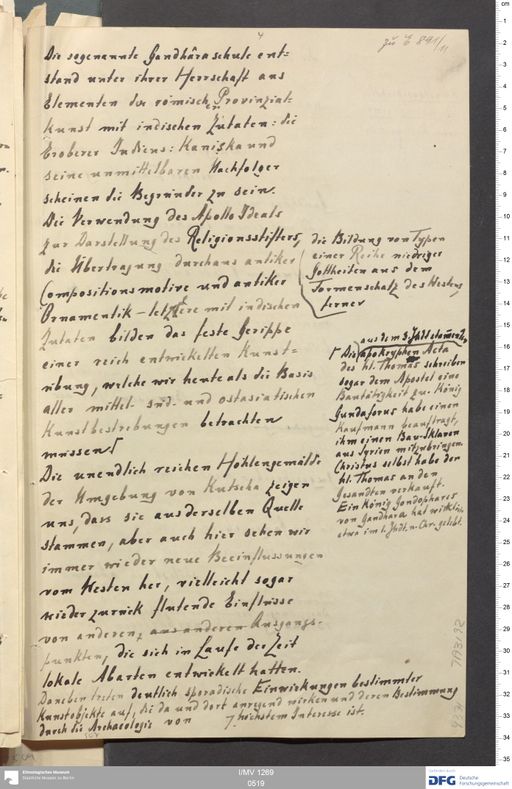 4
zu E 891/11
Die sogenannte Gandhâraschule ent-
stand unter ihrer Herrschaft aus
Elementen der römischen Provinzial-
kunst mit indischen Zutaten: die
Eroberer Indiens: Kaniška und
seine unmittelbaren Nachfolger
scheinen die Begründer zu sein.
Die Verwendung des Apollo Ideals
zur Darstellung des Religionsstifters,
die Übertragung durchaus antiker
Compositionsmotive und antiker
Ornamentik – letztere mit indischen
Zutaten bilden das feste Gerippe
einer reich entwickelten Kunst=
übung, welche wir heute als die Basis
aller mittel- süd- und ostasiatischen
Kunstbestrebungen betrachten
müssen.
Die unendlich reichen Höhlengemälde
der Umgebung von Kutscha zeigen
uns, dass sie aus derselben Quelle
stammen, aber auch hier sehen wir
immer wieder neue Beeinflussungen
vom Westen her, vielleicht sogar
wieder zurück flutende Einflüsse
von anderen, aus anderen Ausgangs-
punkten, die sich im Laufe der Zeit
lokale Abarten entwickelt hatten.
Daneben treten deutlich sporadische Einwirkungen bestimmter
Kunstobjekte auf, die da und dort anregend wirken und deren Bestimmung
durch die Archaeologie von höchstem Interesse ist.
die Bildung von Typen
einer Reihe niedriger
Gottheiten aus dem
Formenschatz des Westens,
ferner
aus dem 3. Jhdt stammenden
Die apokryphen Acta
des hl. Thomas schreiben
sogar dem Apostel eine
Bautätigkeit zu. König
Gundaforus habe einen
Kaufmann beauftragt,
ihm einen Bau-Sklaven
aus Syrien mitzubringen.
Christus selbst habe den
hl. Thomas an den
Gesandten verkauft.
Ein König Gondophares
von Gandhara hat wirklich
etwa im 1. Jhdt. n. Chr. gelebt.
Ethnologisches Museum
Staatliche Museen zu Berlin
I/MV 1269
0519
DFG
Deutsche
Forschungsgemeinschaft